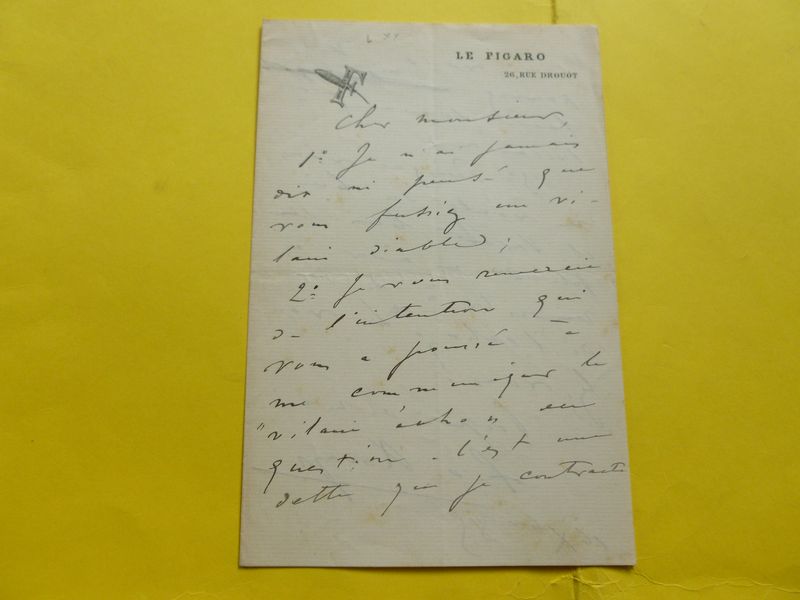 LE FIGARO
26, RUE DROUOT
F
Cher monsieur,
1º Je n'ai jamais
dit ni pensé que
vous fussiez un vi-
lain diable ;
2º Je vous remercie
de l'intention qui
vous a poussé à
me communiquer le
"vilain écho" en
question. C'est une
dette que je contracte